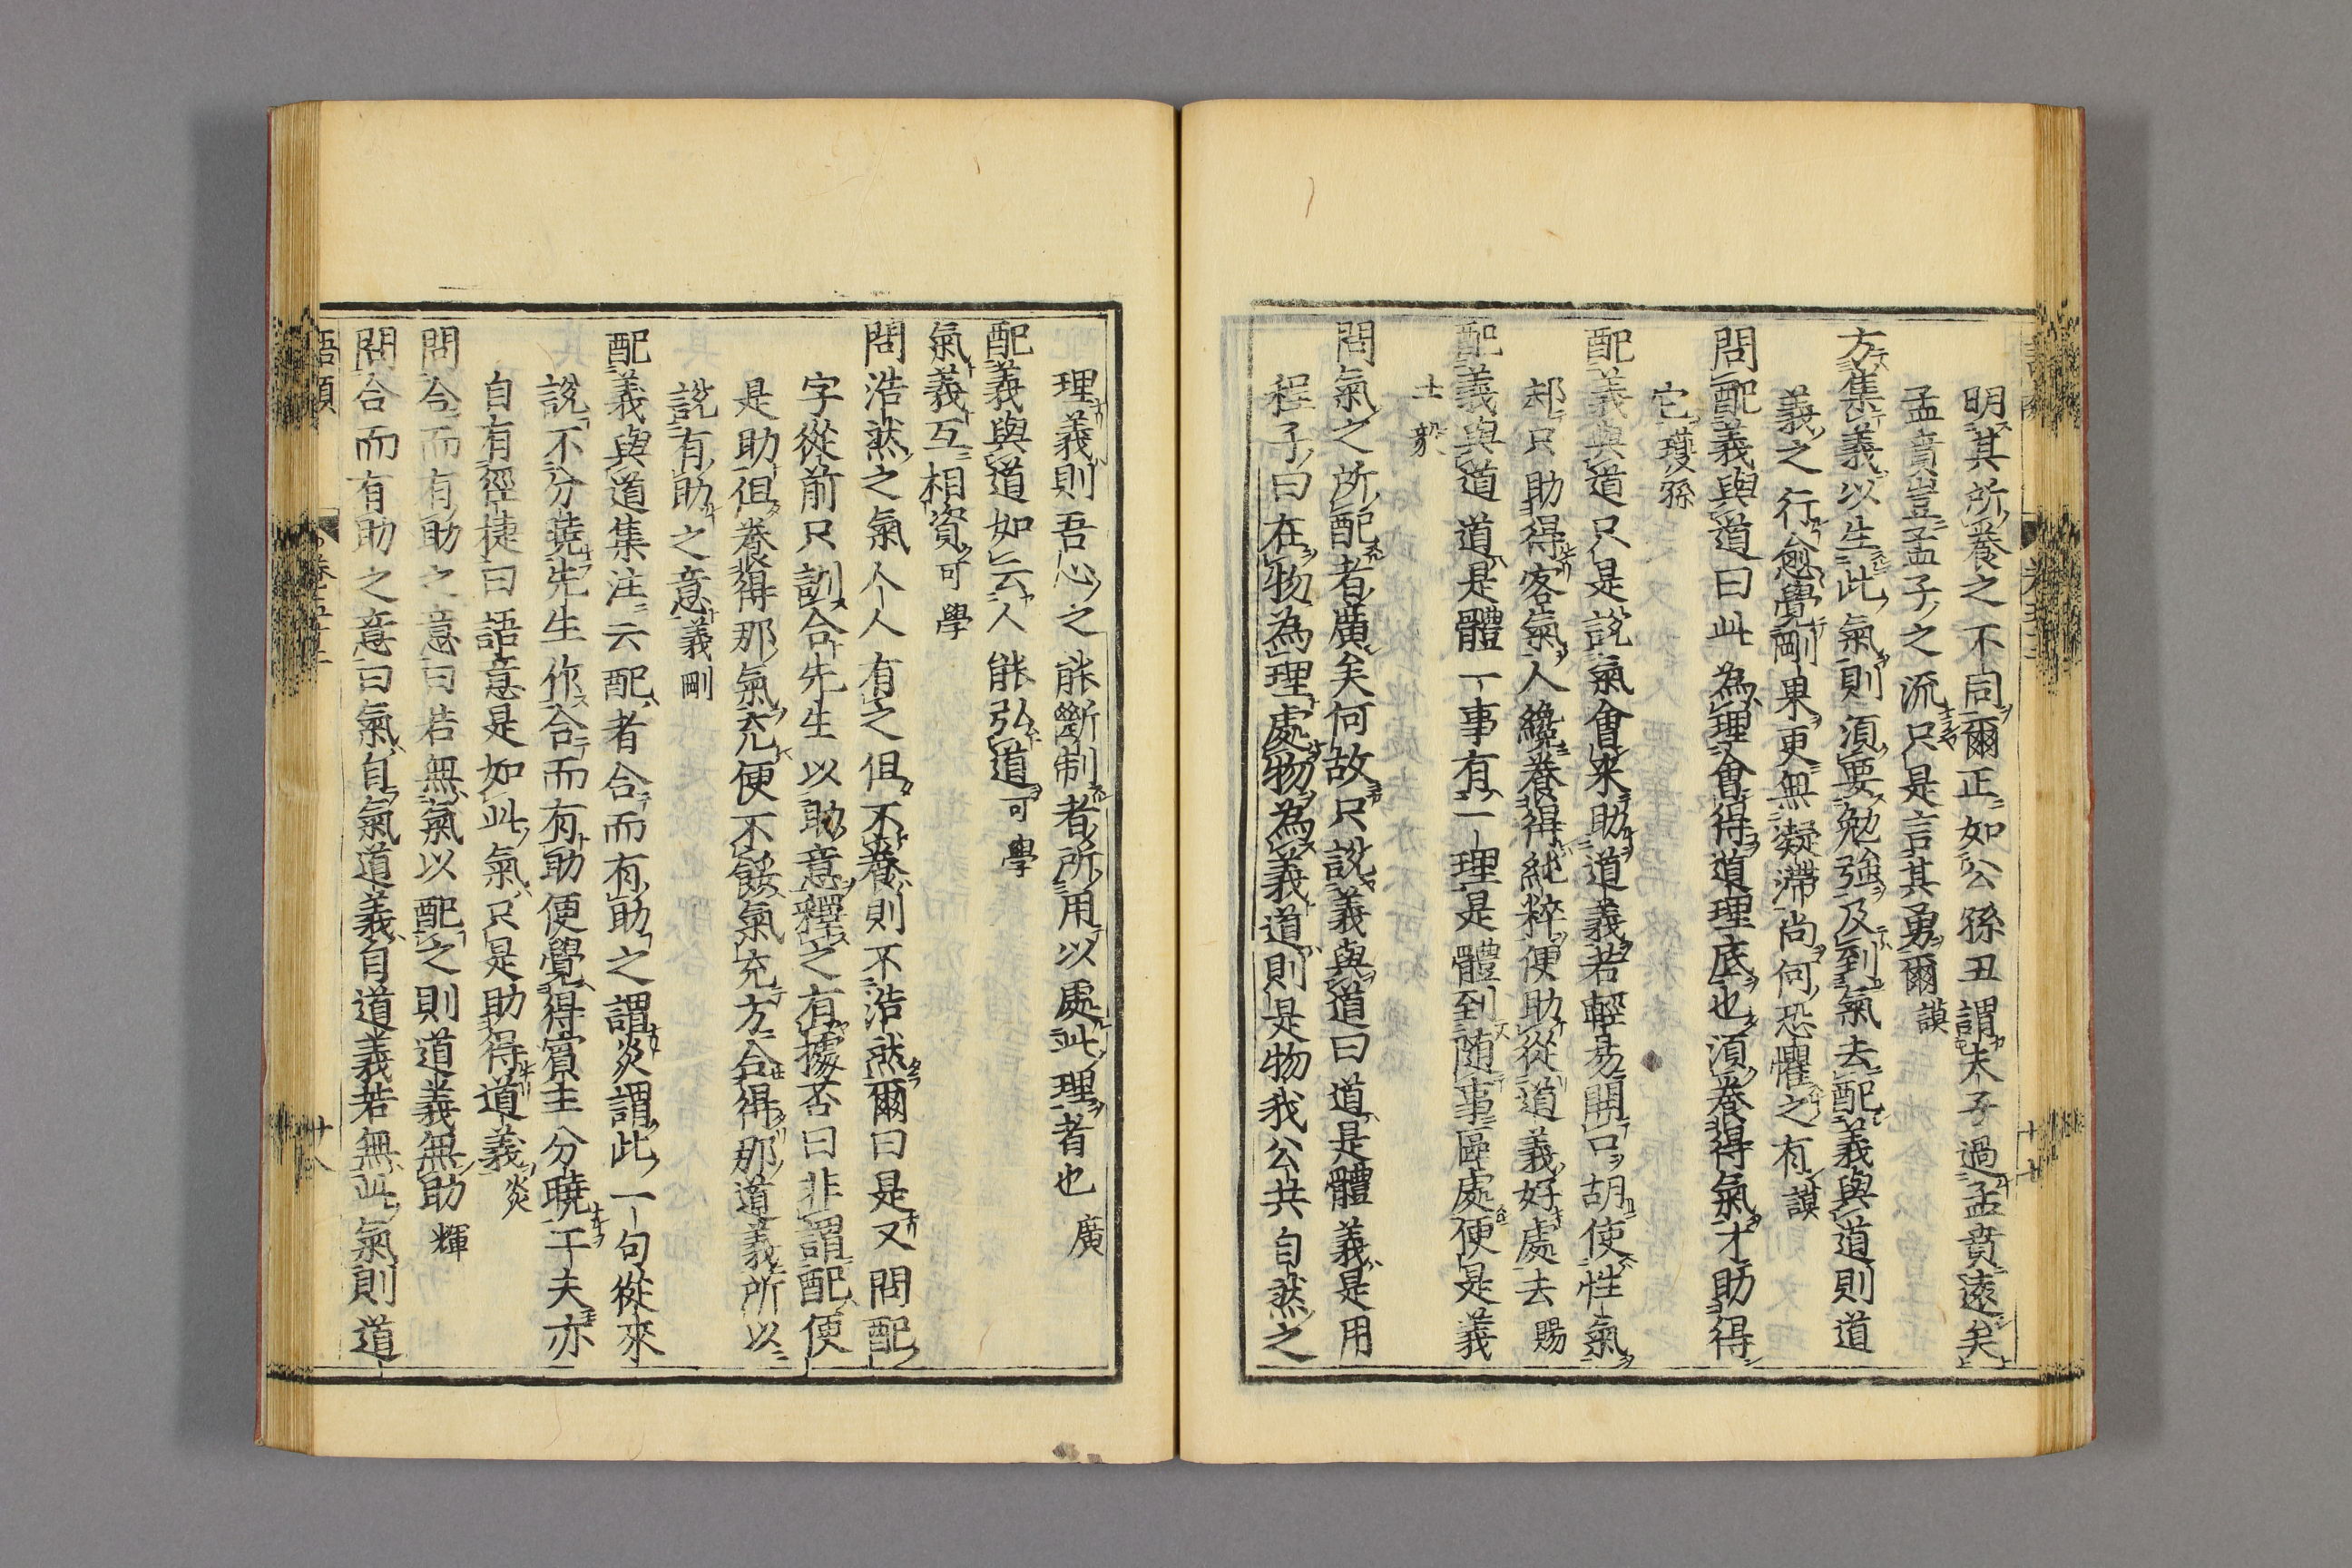 明其所養之不同爾正如公孫丑謂夫子過孟賁遠矣
孟賁豈孟子之流只是言其勇爾 謨
方集義以生此氣則須要勉強及到氣去配義與道則道
義之行愈覺剛果更無凝滯尚何恐懼之有 謨
問配義與道曰此為理會得道理底也須養得氣才助得
它 璣孫
配義與道只是說氣會來助道義若輕易開口胡使性氣
却只助得客氣人纔養得純粹便助從道義好處去 賜
配義與道道是體一事有一理是體到隨事區處便是義
士毅
問氣之所配者廣矣何故只說義與道曰道是體義是用
程子曰在物為理處物為義道則是物我公共自然之
理義則吾心之能斷制者所用以處此理者也 廣
配義與道如云人能弘道 可學
氣義互相資 可學
問浩然之氣人人有之但不養則不浩然爾曰是又問配
字從前只訓合先生以助意釋之有據否曰非謂配便
是助但養得那氣充便不餒氣充方合得那道義所以
說有助之意 義剛
配義與道集注云配者合而有助之謂炎謂此一句從來
說不分曉先生作合而有助便覺得賓主分曉工夫亦
自有徑捷曰語意是如此氣只是助得道義 炎
問合而有助之意曰若無氣以配之則道義無助 輝
問合而有助之意曰氣自氣道義自道義若無此氣則道
語類
卷五十二
十八